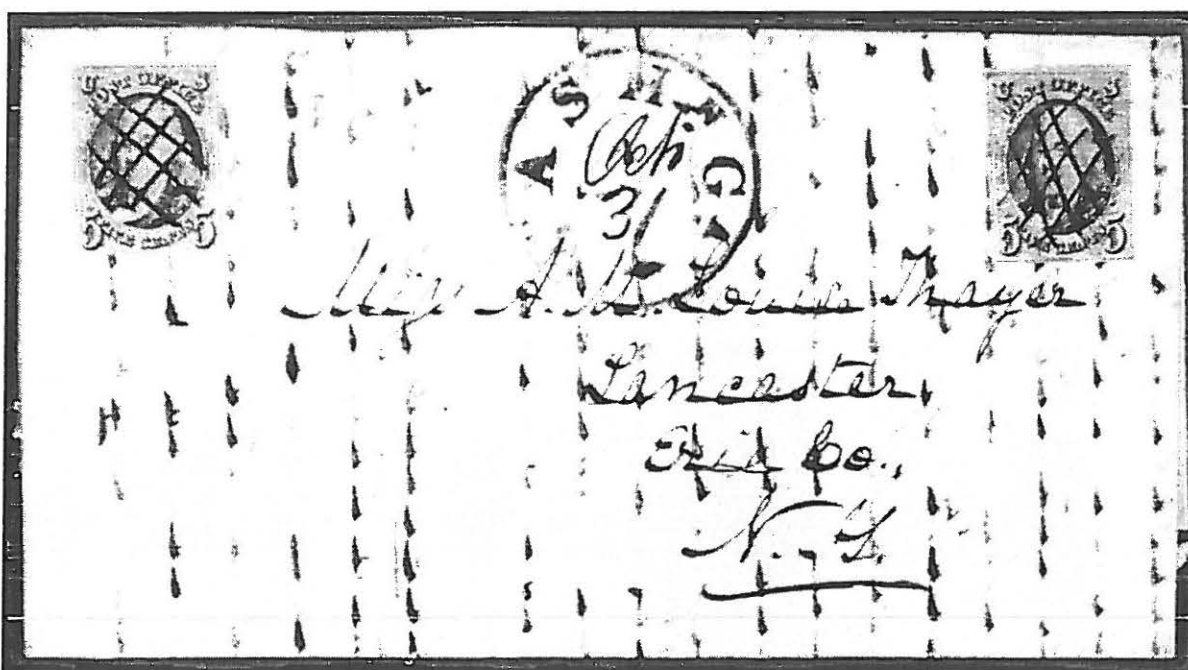 POST OFFICE
5 5
FIVE CENTS
ASH GA
Oct
31
POST OFFICE
5 5
FIVE CENTS
Miss A. M. Louisa Thayer
Lancaster,
Erie Co.,
N. Y.